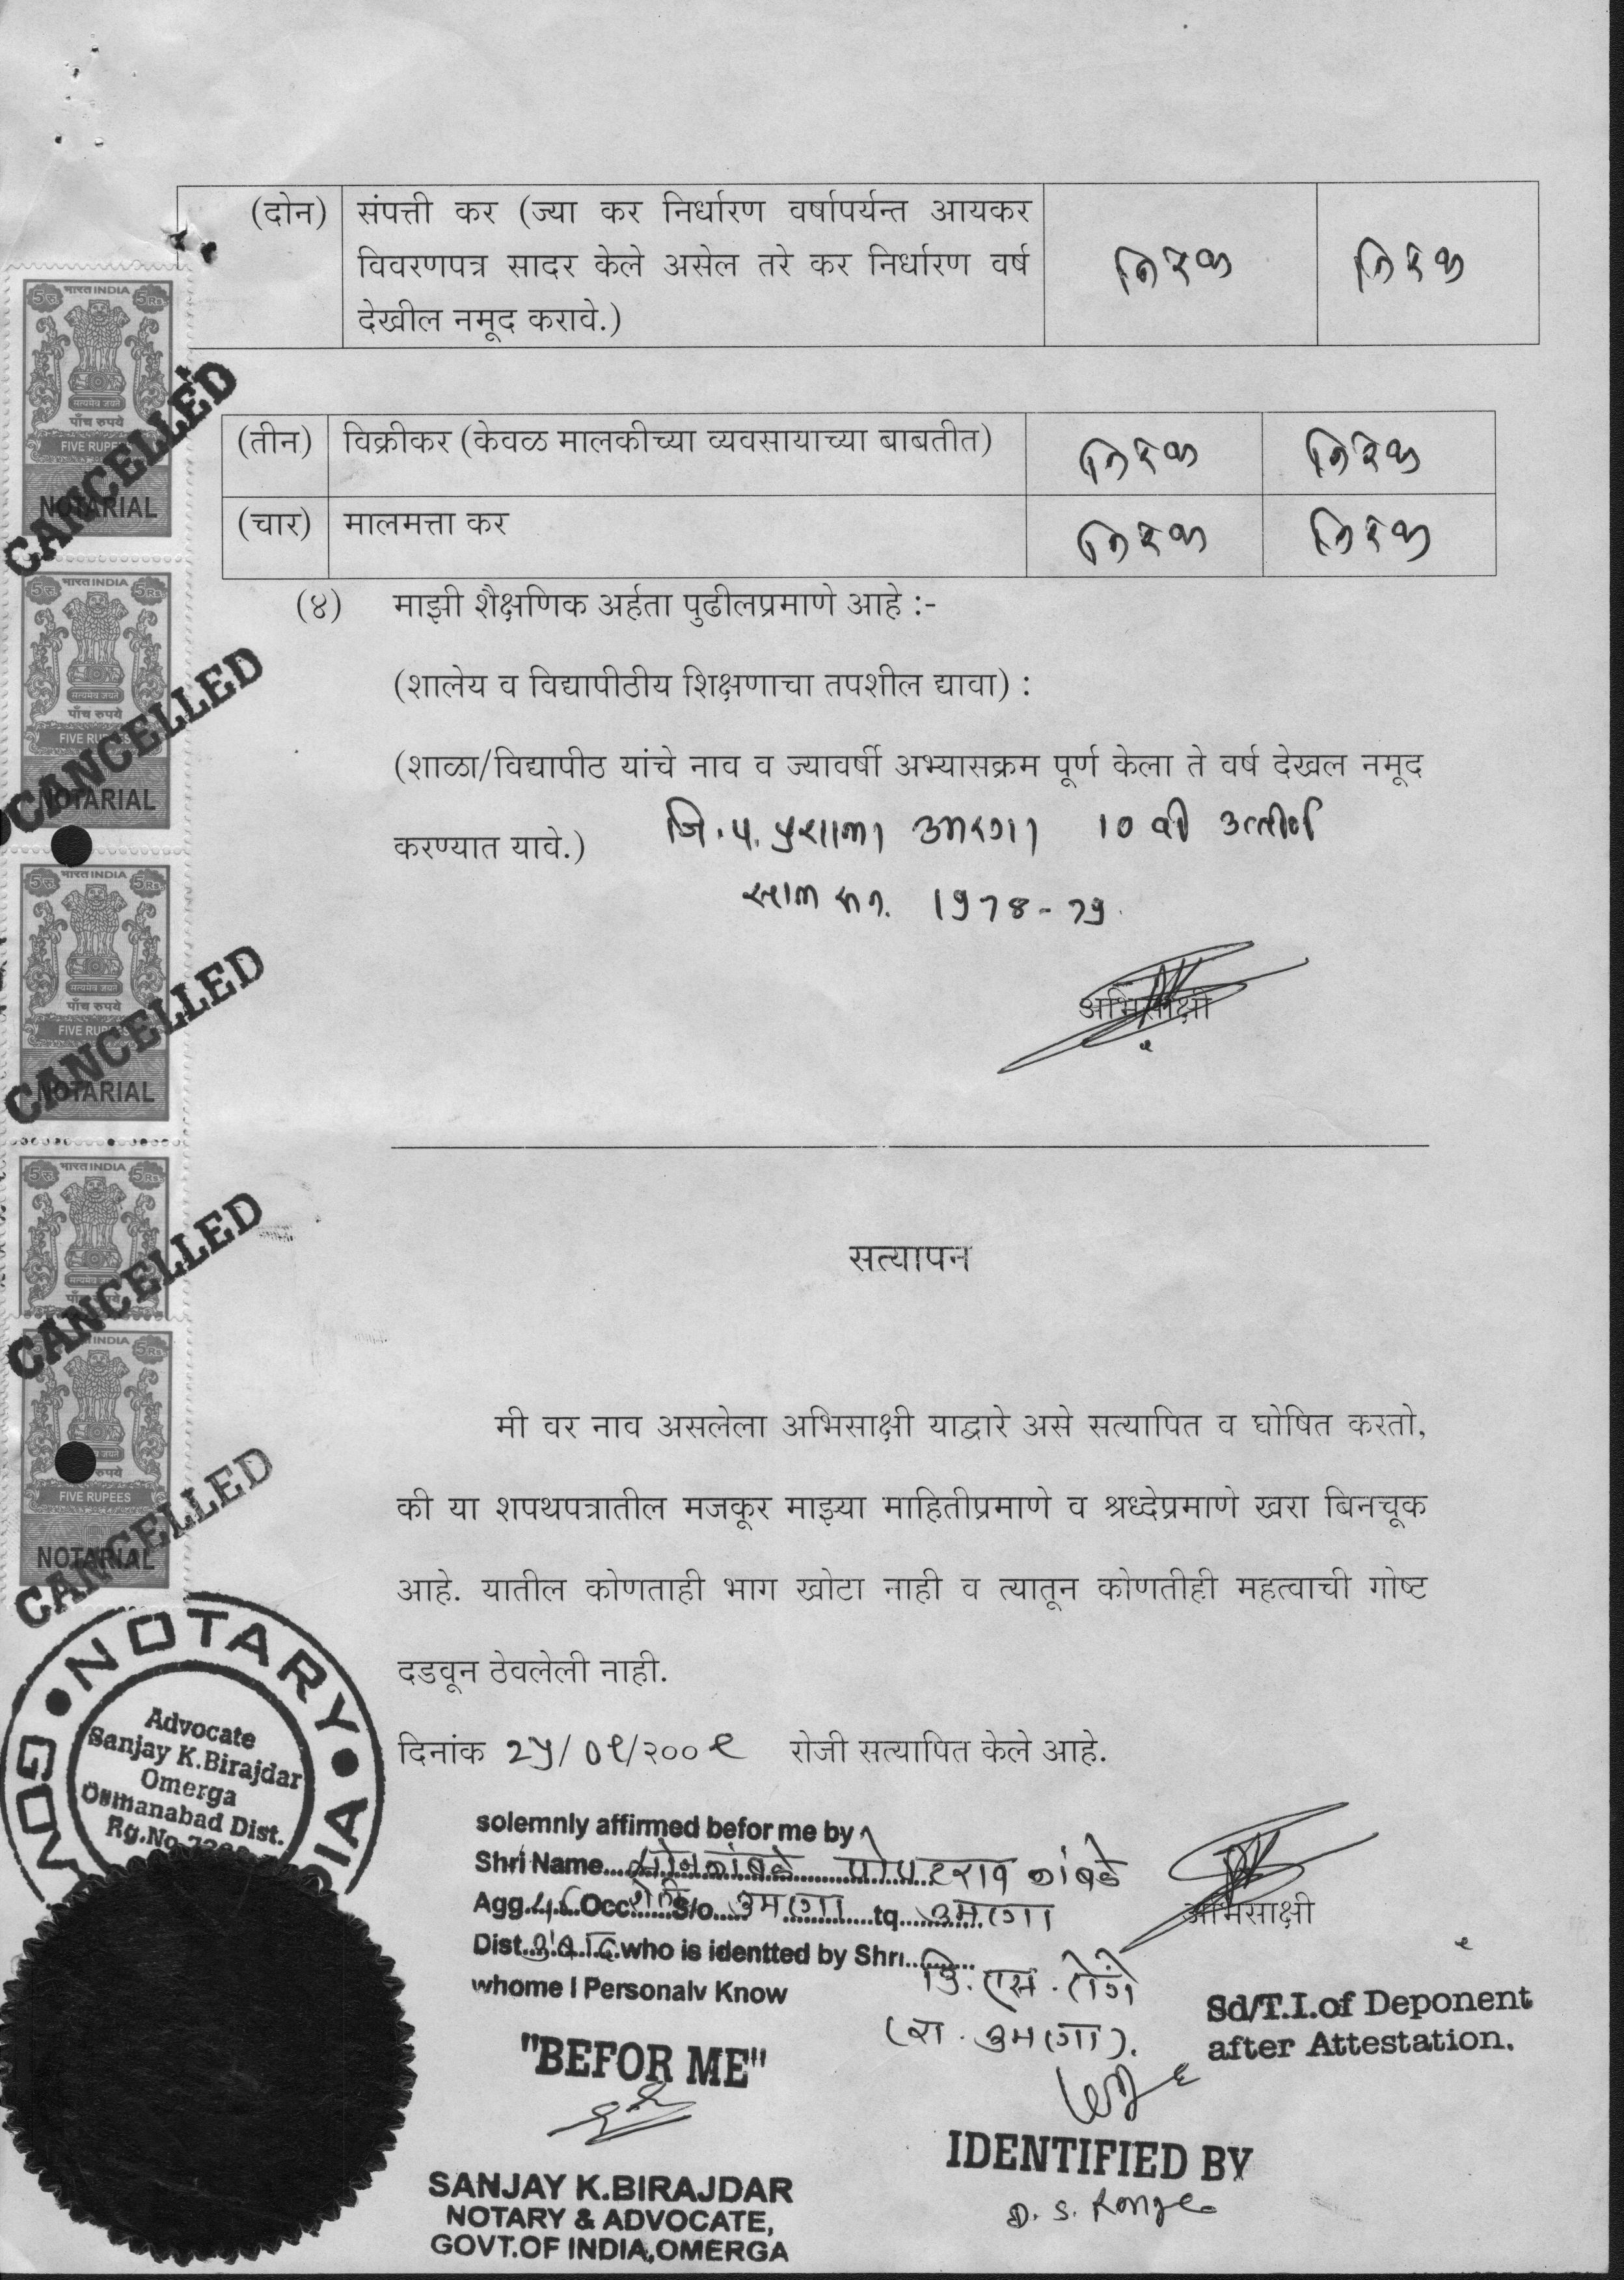 (दोन) संपत्ती कर (ज्या कर निर्धारण वर्षापर्यन्त आयकर
विवरणपत्र सादर केले असेल तरे कर निर्धारण वर्ष
देखील नमूद करावे.)
निरंक निरंक
(तीन) विक्रीकर (केवळ मालकीच्या व्यवसायाच्या बाबतीत) निरंक निरंक
(चार) मालमत्ता कर निरंक निरंक
(४) माझी शैक्षणिक अर्हता पुढीलप्रमाणे आहे :-
(शालेय व विद्यापीठीय शिक्षणाचा तपशील द्यावा) :
(शाळा/विद्यापीठ यांचे नाव व ज्यावर्षी अभ्यासक्रम पूर्ण केला ते वर्ष देखल नमूद
करण्यात यावे.) जि.प. प्रशाला उमरगा 10 वी उत्तीर्ण
साल सन. 1978-79.
अभिसाक्षी
सत्यापन
मी वर नाव असलेला अभिसाक्षी याद्वारे असे सत्यापित व घोषित करतो,
की या शपथपत्रातील मजकूर माझ्या माहितीप्रमाणे व श्रध्देप्रमाणे खरा बिनचूक
आहे. यातील कोणताही भाग खोटा नाही व त्यातून कोणतीही महत्वाची गोष्ट
दडवून ठेवलेली नाही.
दिनांक 25/०९/२००९ रोजी सत्यापित केले आहे.
solemnly affirmed befor me by
Shri Name..... पोपटराव
Agg.....Occ.....S/o..... उमरगा .....tq..... उमरगा
Dist..........who is identted by Shri..........
whome I Personaly Know
(रा. उमरगा).
अभिसाक्षी
Sd/T.I.of Deponent
after Attestation.
"BEFOR ME"
SANJAY K.BIRAJDAR
NOTARY & ADVOCATE,
GOVT.OF INDIA,OMERGA
IDENTIFIED BY
D. S. Ronge
भारत INDIA
5रु. 5Rs.
सत्यमेव जयते
पाँच रुपये
FIVE RUPEES
NOTARIAL
CANCELLED
भारत INDIA
5रु. 5Rs.
सत्यमेव जयते
पाँच रुपये
FIVE RUPEES
NOTARIAL
CANCELLED
भारत INDIA
5रु. 5Rs.
सत्यमेव जयते
पाँच रुपये
FIVE RUPEES
NOTARIAL
CANCELLED
भारत INDIA
5रु. 5Rs.
सत्यमेव जयते
CANCELLED
INDIA
5Rs.
रुपये
FIVE RUPEES
NOTARIAL
CANCELLED
NOTARY
Advocate
Sanjay K.Birajdar
Omerga
Osmanabad Dist.
Rg.No.